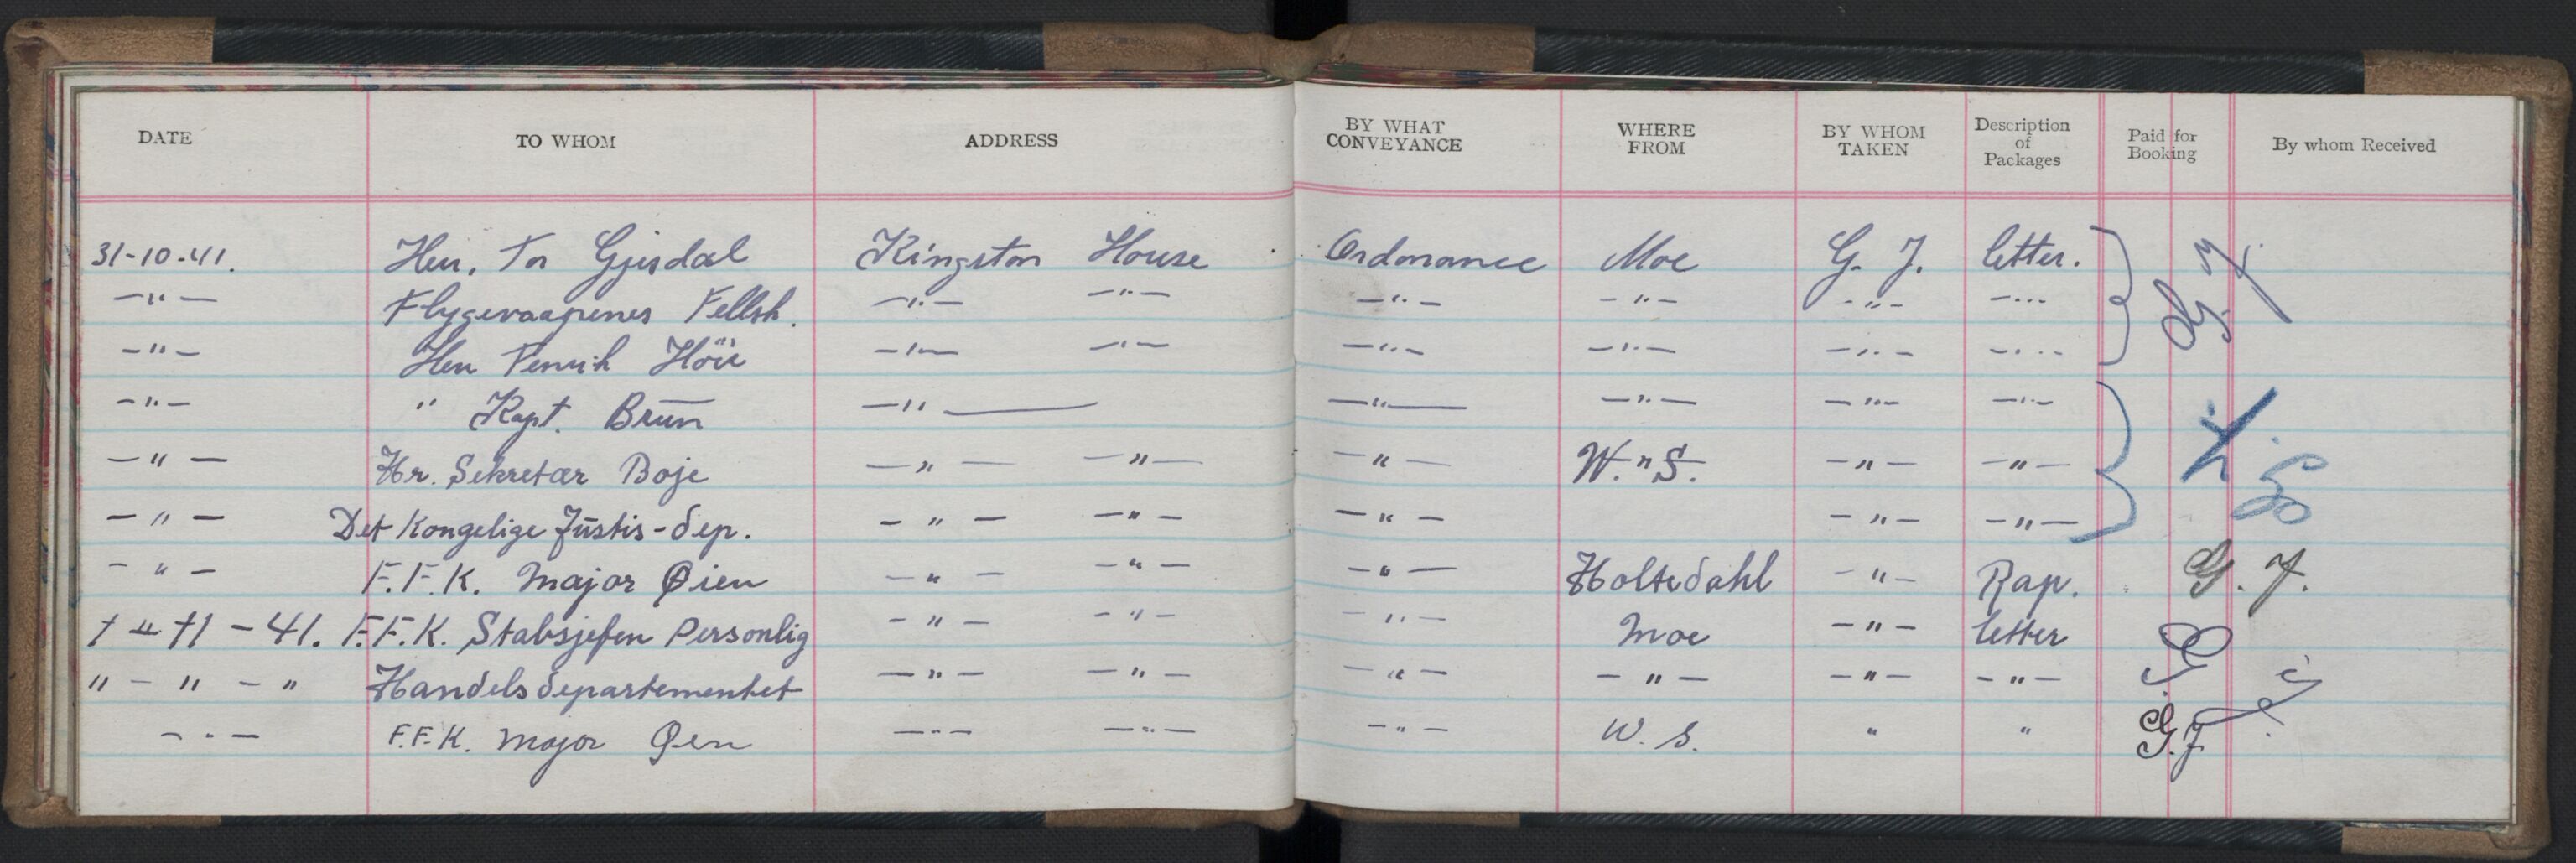 DATE TO WHOM ADDRESS BY WHAT CONVEYANCE WHERE FROM BY WHOM TAKEN Description of Packages Paid for Booking By whom Received
31-10-41. Herr. Tor Gjesdal Kingston House Ordonance Moe G. J. letter.
—"— Flygevaapenes Fellsk. —"— —"— —"— —"— —"— —"—
—"— Herr Fenrik Höie —"— —"— —"— —"— —"— —"— G. J.
—"— " Kapt. Brun —"— —"— —"— —"— —"—
—"— Hr. Sekretær Boje —"— —"— —"— W."S. —"— —"—
—"— Det Kongelige Justis-dep. —"— —"— —"— —"— —"—
—"— F.F.K. Major Øien —"— —"— —"— Holtedahl —"— Rap. G. J.
1-11-41. F.F.K. Stabsjefen Personlig —"— —"— —"— Moe —"— letter
"—"—" Handelsdepartementet —"— —"— —"— —"— —"— —"— G. J.
—"— F.F.K. Major Øen —"— —"— —"— W. S. " " G.J